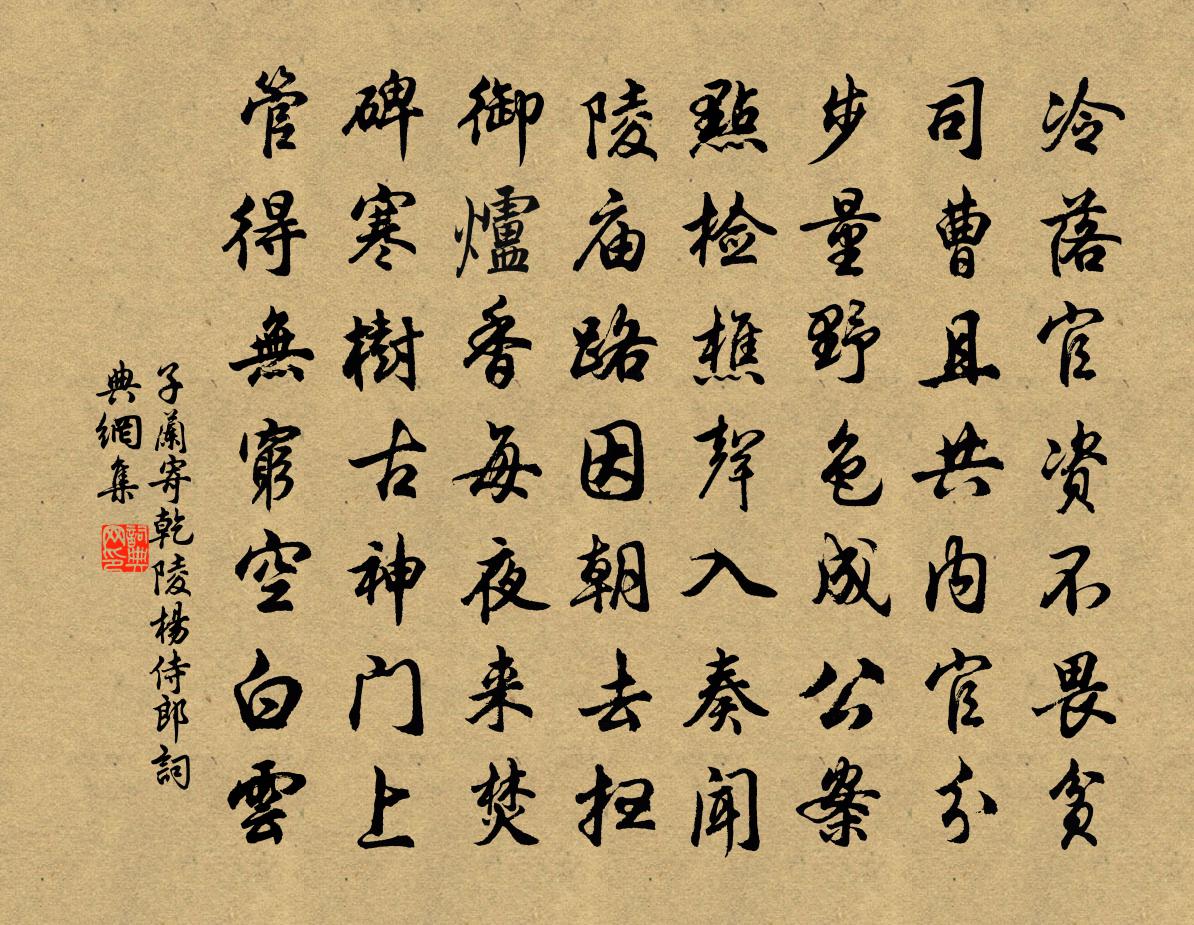 冷落官资不畏貧
司曹且共内官分
步量野色成公案
點检樵聲入奏闻
陵庙路因朝去扫
御爐香每夜来焚
碑寒樹古神门上
管得無窮空白雲
子蘭寄乾陵楊侍郎詞
典網集
詞典网印